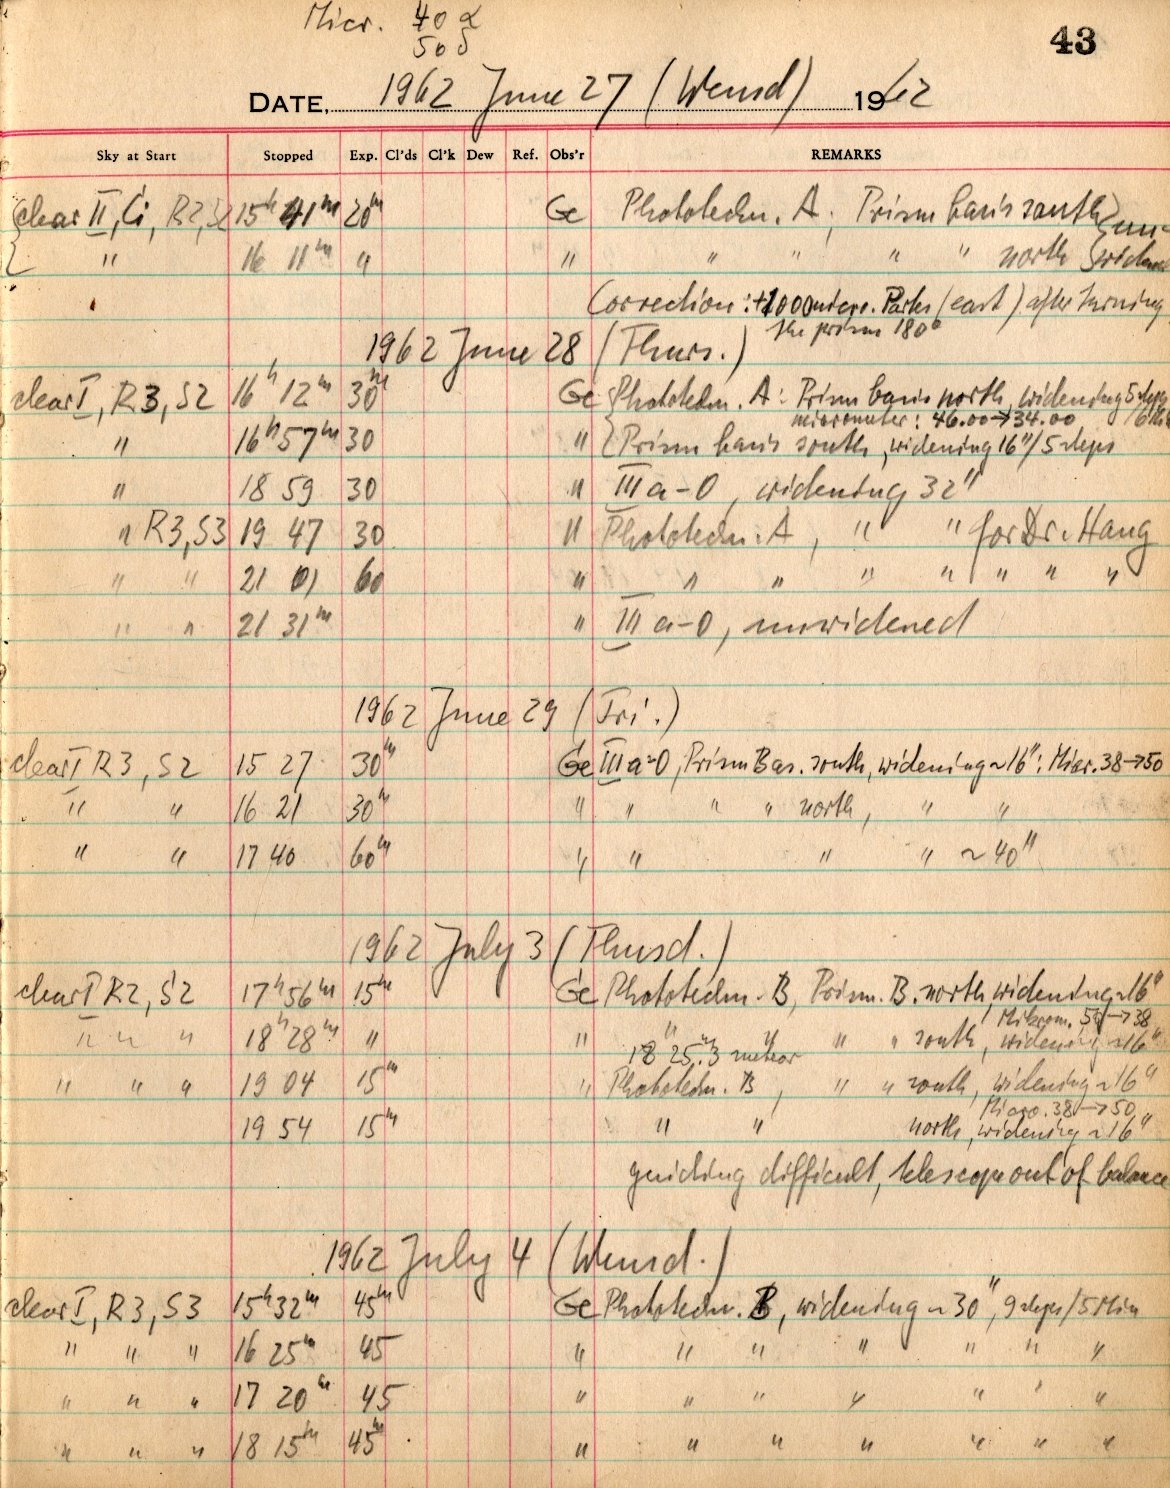 Micr. 40 α
50 δ
43
DATE, 1962 June 27 (Wensd) 1962
Sky at Start Stopped Exp. Cl'ds Cl'k Dew Ref. Obs'r REMARKS
clear II, Ci, R2, 15h 41m 20m Ge Phototechn. A. Prism basis south un-
" 16 11m " " " " " " north widened
Correction: +1000 micr. Parts (east) after turning
the prism 180°
1962 June 28 (Thurs.)
clear I, R3, S2 16h 12m 30m Ge Phototechn. A: Prism basis north, widening 5 steps
micrometer: 46.00→34.00
" 16h 57m 30 " Prism basis south, widening 16"/5 steps
" 18 59 30 " III a-O, widening 32"
" R3, S3 19 47 30 " Phototechn. A, " " for Dr. Haug
" " 21 01 60 " " " " " " " "
" " 21 31m " III a-O, unwidened
1962 June 29 (Fri.)
clear I R3, S2 15 27 30m Ge III a-O, Prism Bas. south, widening ~16": Micr. 38→50
" " 16 21 30m " " " " north, " "
" " 17 40 60m " " " " ~40"
1962 July 3 (Thusd.)
clear I R2, S2 17h 56m 15m Ge Phototechn. B, Prism. B. north, widening ~16"
Mikrom. 50→38
" " " 18h 28m " " " " " " " south, widening ~16"
18 25.3 meteor
" " " 19 04 15m " Phototechn. B, " " south, widening ~16"
Micro. 38→50
19 54 15m " " north, widening ~16"
guiding difficult, telescope out of balance
1962 July 4 (Wensd.)
clear I, R3, S3 15h 32m 45m Ge Phototechn. B, widening ~30", 9 steps/5 Min
" " " 16 25m 45 " " " " " " "
" " " 17 20m 45 " " " " " " "
" " " 18 15m 45m " " " " " " "